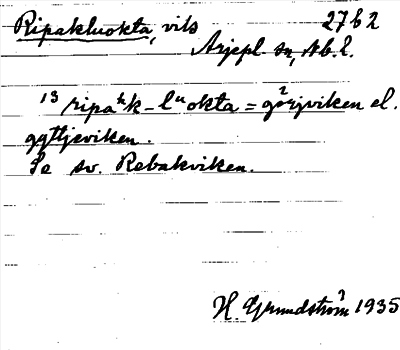 Ripakluokta, vik 27 b 2
Arjepl. sn, Nb. l.
13 ripaᵏk-lᵘokta = görjviken el.
gyttjeviken.
Se sv. Rebakviken.
H. Grundström 1935